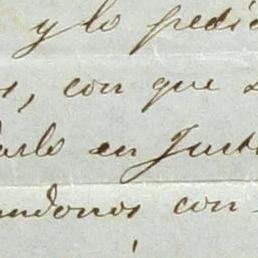 y lo pedi
s, con que s
arlo en Just
andonos con